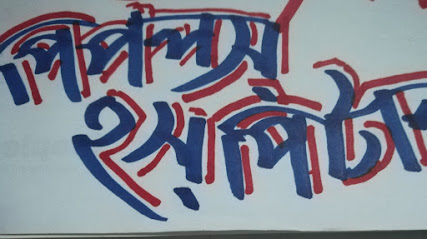 পিপলস্
হস্‌পিটাল